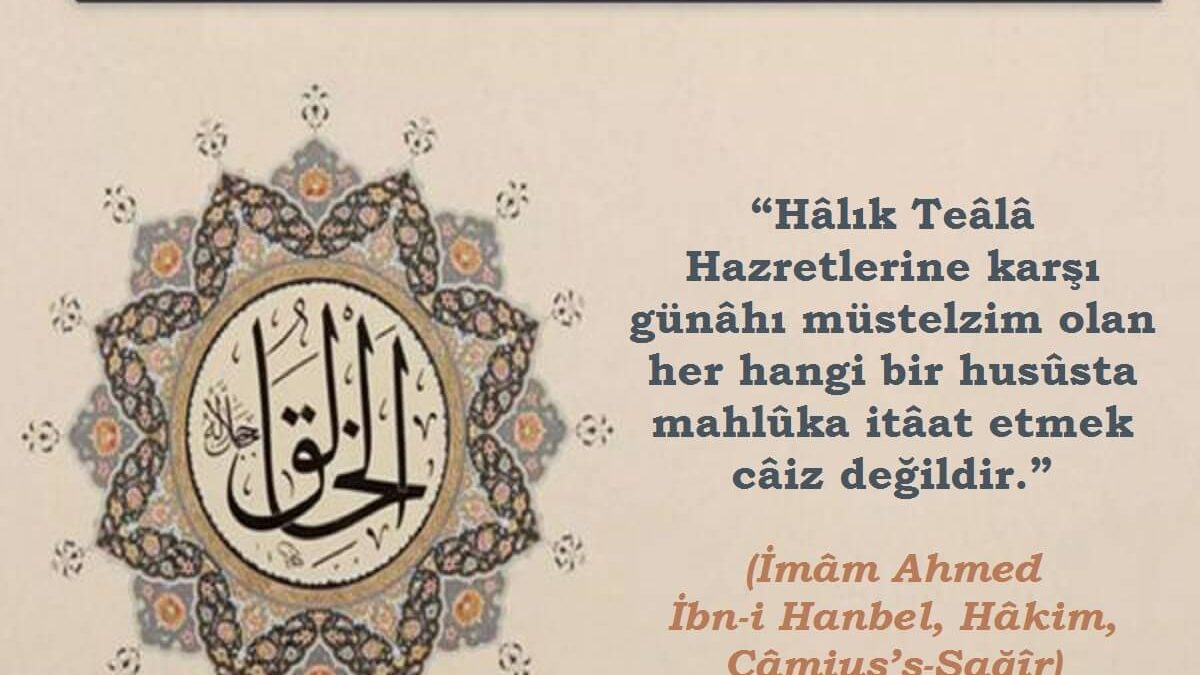 الخالق
جل جلاله
“Hâlık Teâlâ
Hazretlerine karşı
günâhı müstelzim olan
her hangi bir husûsta
mahlûka itâat etmek
câiz değildir.”
(İmâm Ahmed
İbn-i Hanbel, Hâkim,
Câmius’s-Sağîr)